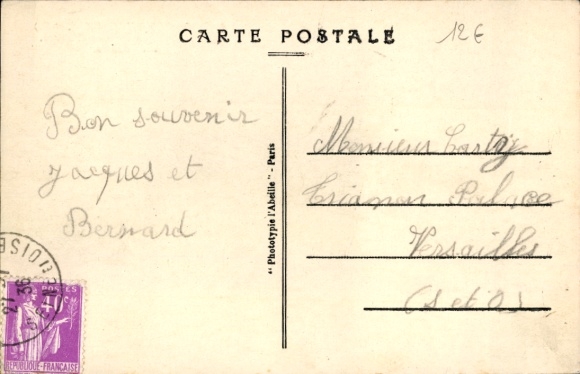 CARTE POSTALE
12€
Bon souvenir
Jacques et
Bernard
"Phototypie l'Abeille" - Paris
Monsieur
Trianon Palace
Versailles
(S et O)
40c
36
REPUBLIQUE-FRANÇAISE